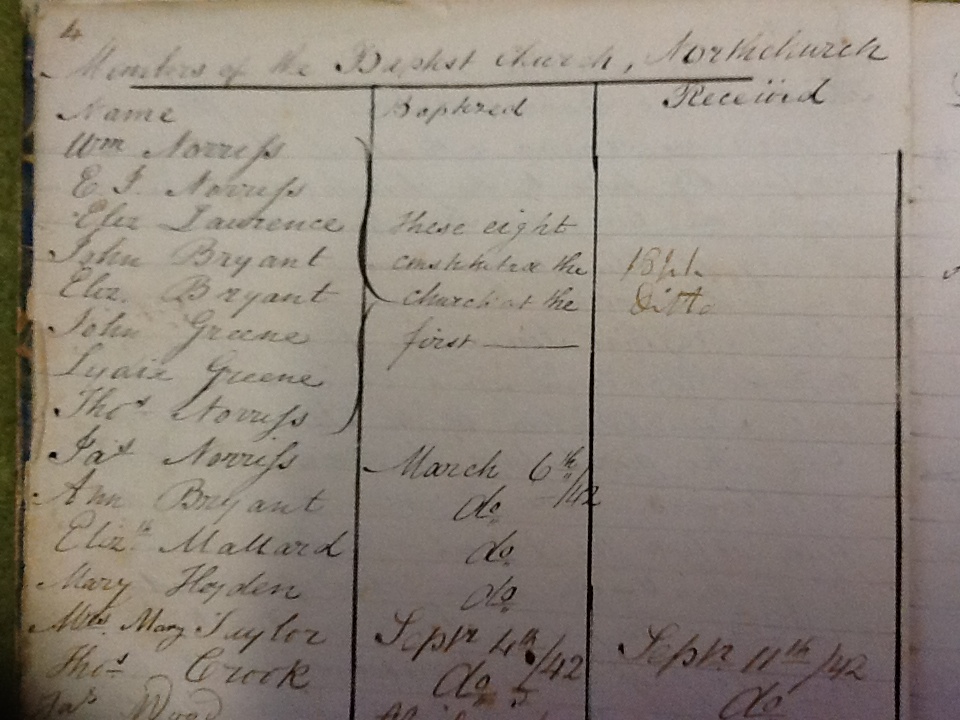 4
Members of the Baptist Church, Northchurch
Name Baptized Received
Wm Norriss
E. J. Norriss
Eliz Lawrence these eight
John Bryant constituted the 1841
Eliz. Bryant church at the Ditto
John Greene first
Lydia Greene
Thos Norriss
Jas Norriss March 6th/42
Ann Bryant do
Elizth Mallard do
Mary Hoyden do
Mrs. Mary Taylor Septr 4th/42 Septr 11th/42
Thos Crook do do
Jas Wood